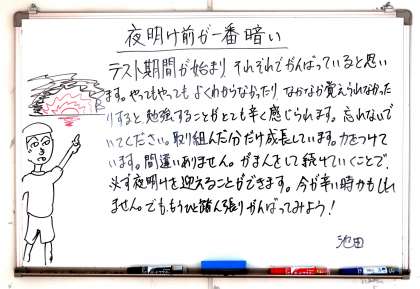 夜明け前が一番暗い
テスト期間が始まり それぞれでがんばっていると思い
ます。やってもやっても よくわからなかったり なかなか覚えられなかった
りすると 勉強することがとても辛く感じられます。忘れないで
いてください。取り組んだ分だけ成長しています。力をつけて
います。間違いありません。がまんをして続けていくことで、
必ず夜明けを迎えることができます。今が辛い時かもしれ
ません。でも、もうひと踏ん張りがんばってみよう!
池田